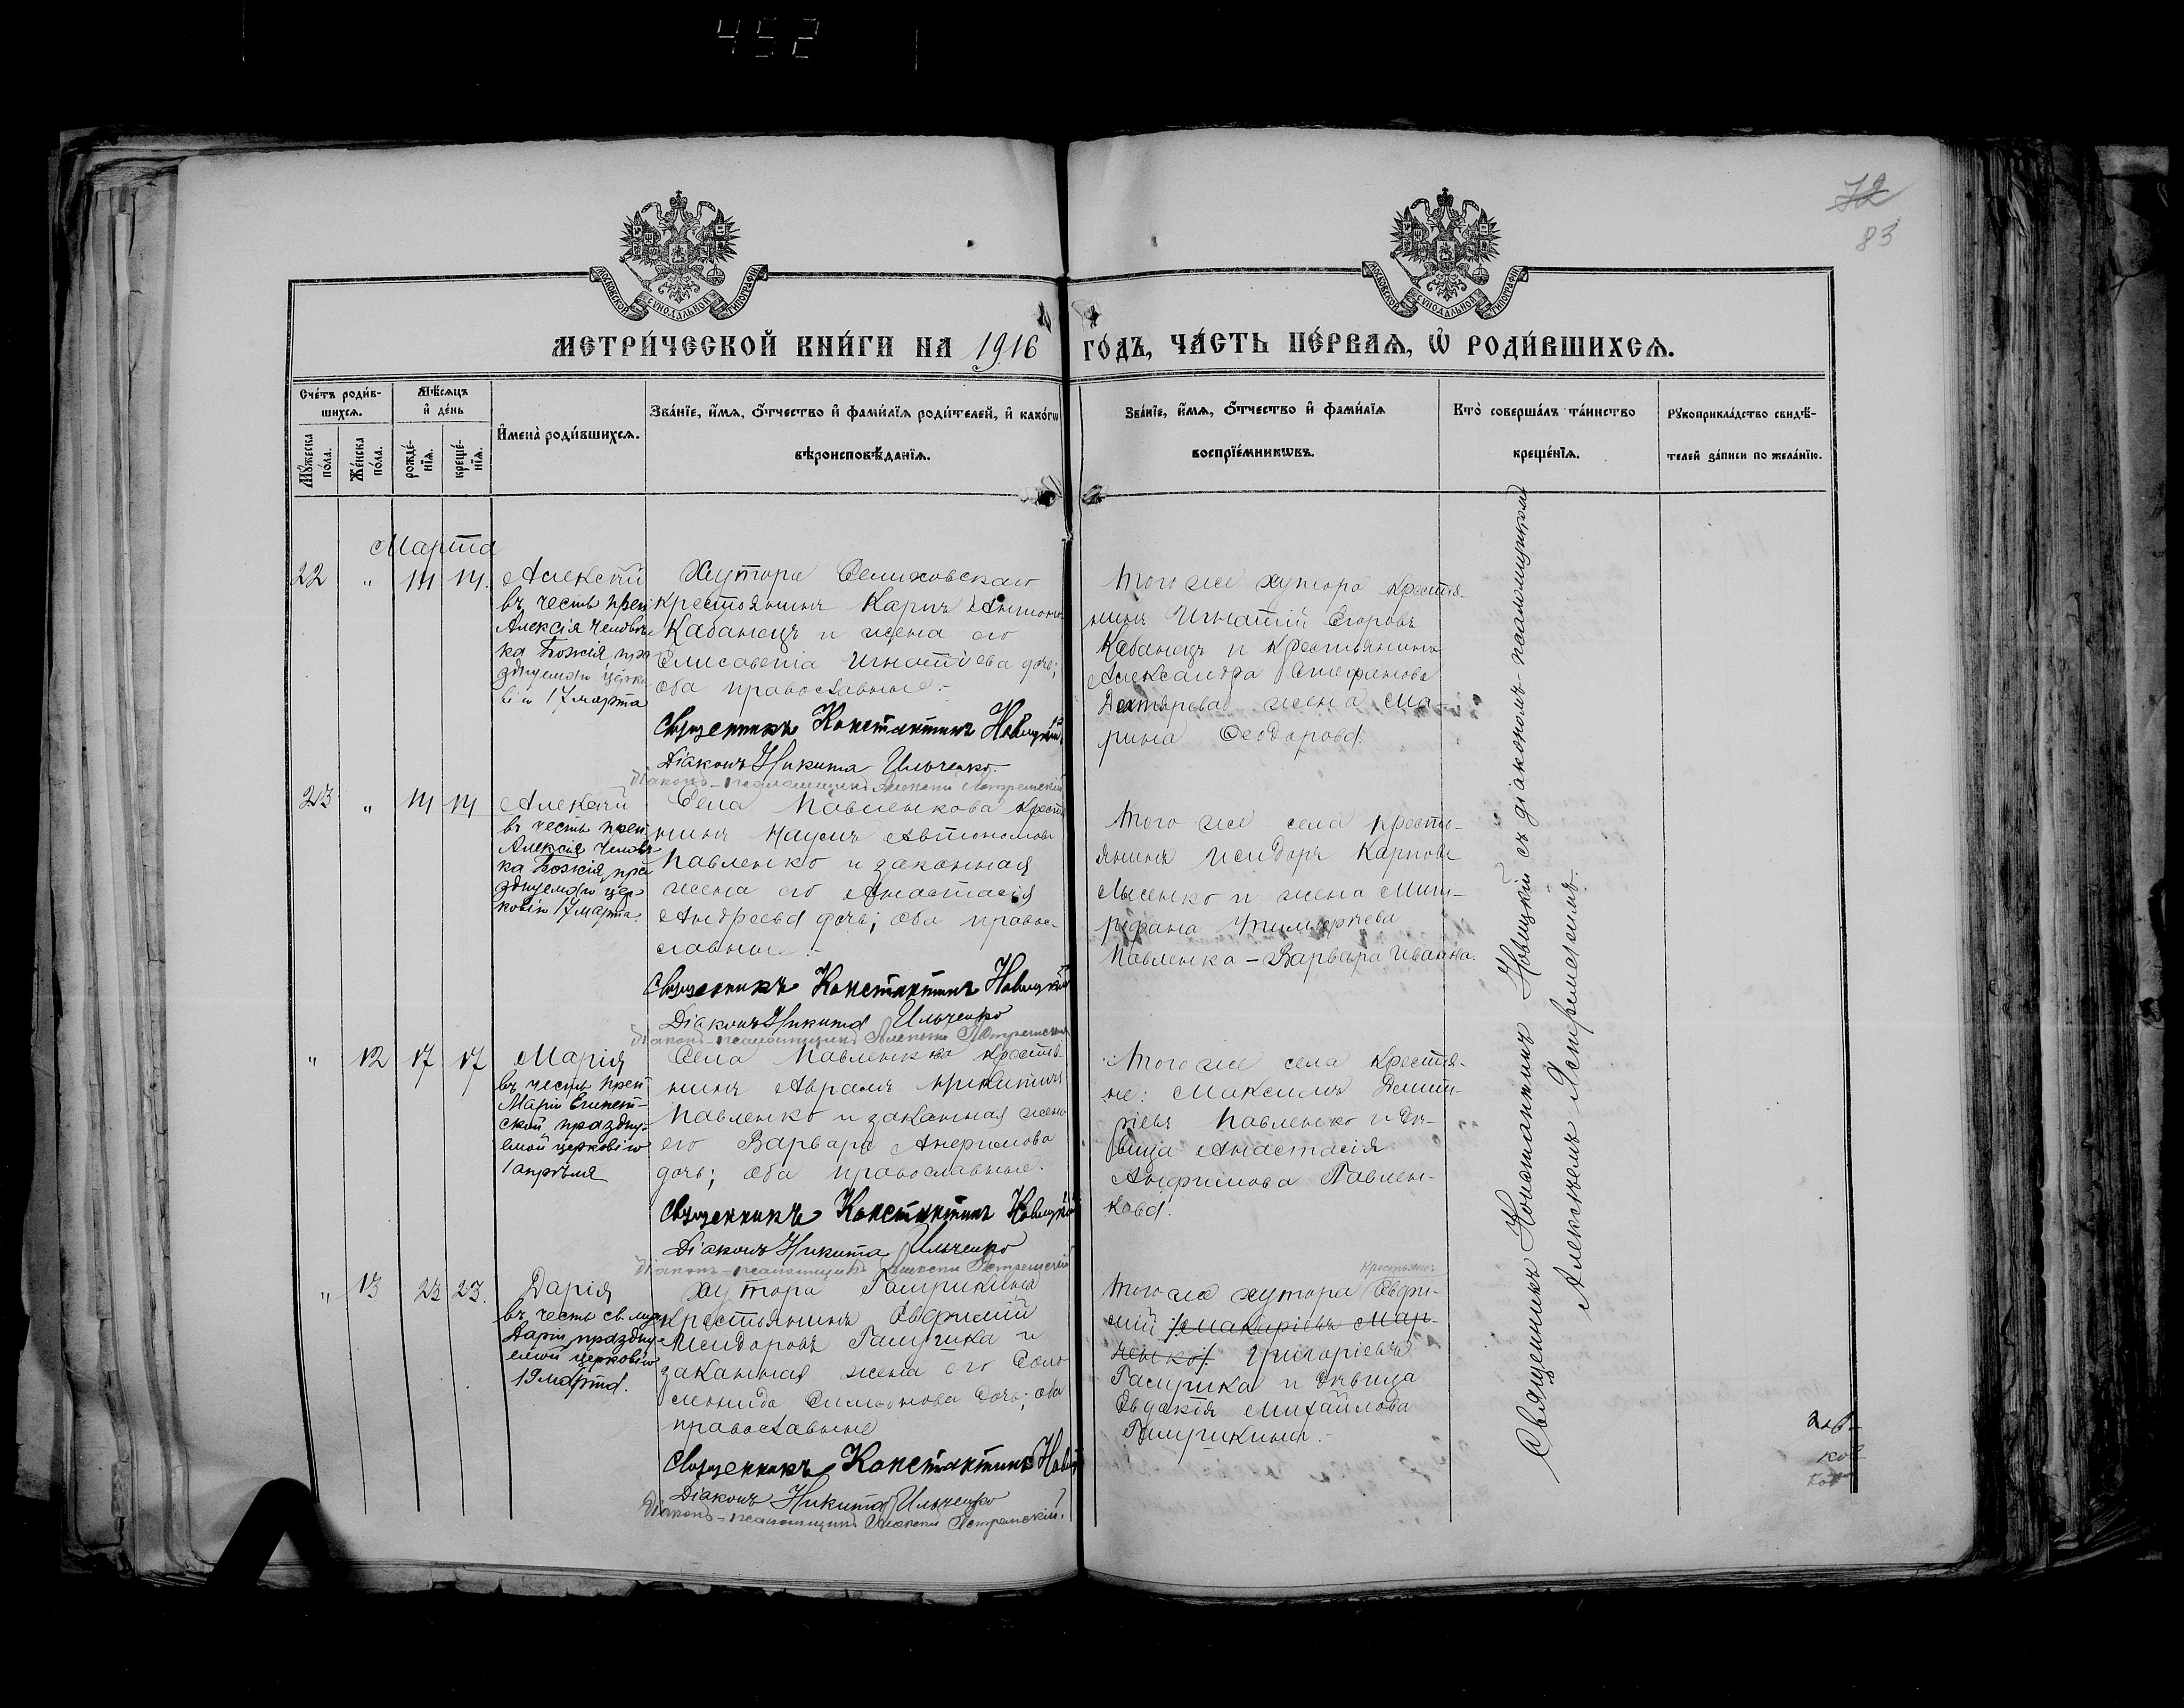 452
72
83
МОСКОВСКОЙ СѴНОДАЛЬНОЙ ТИПОГРАФІИ
МОСКОВСКОЙ СѴНОДАЛЬНОЙ ТИПОГРАФІИ
МЕТРИ́ЧЕСКОЙ КНИ́ГИ НА 1916 ГО́ДЪ, ЧА́СТЬ ПЕ́РВАѦ, Ѡ҆ РОДИ́ВШИХСѦ.
Сче́тъ роди́в-
шихсѧ.
Мѣ́сѧцъ
и҆ де́нь
Мꙋ́жеска
по́ла.
Же́нска
по́ла.
рожде́-
нїѧ.
креще́-
нїѧ.
И҆мена̀ роди́вшихсѧ.
Зва́нїе, и҆́мѧ, ѻ҆́тчество и҆ фами́лїѧ роди́телей, и҆ како́гѡ
вѣроисповѣ́данїѧ.
Зва́нїе, и҆́мѧ, ѻ҆́тчество и҆ фами́лїѧ
воспрїе́мникѡвъ.
Кто̀ соверша́лъ та́инство
креще́нїѧ.
Рꙋкоприкла́дство свидѣ́-
телей за́писи по жела́нїю.
Марта
22 " 14 14. Алексѣй
въ честь преп.
Алексія Человѣ-
ка Божія, пра
зднуемаго церко
вію 17 марта
Хутора Селиховскаго
крестьянинъ Карпъ Антонов
Кабанецъ и жена его
Елисавета Игнатіева дочь;
оба православные.-
Священникъ Константинъ Новицкій.
Діаконъ Никита Ильченко.
Діаконъ-псаломщикъ Алексѣй Ястремскій
Того же хутора крестья-
нинъ Игнатій Егоровъ
Кабанецъ и крестьянина
Александра Стефанова
Дехтярева жена Ма-
рина Ѳеодорова.
23 " 14 14 Алексѣй
въ честь преп.
Алексія Человѣ-
ка Божія, пра
зднуемаго цер
ковію 17 марта.
Села Павленкова крестья
нинъ Наумъ Автономовъ
Павленко и законная
жена его Анастасія
Андреева дочь; оба право-
славные.-
Священникъ Константинъ Новицкій
Діаконъ Никита Ильченко
Діаконъ-псаломщикъ Алексѣй Ястремскій
Того же села кресть-
янинъ Исидоръ Карповъ
Лысенко и жена Мит-
рофана
Павленка - Варвара Иванна.
" 12 17 17 Марія
въ честь преп.
Маріи Египет-
ской праздну-
емой церковію
1 апрѣля
Села Павленкова крестья
нинъ Аврамъ Никитинъ
Павленко и законная жена
его Варвара Анфимова
дочь; оба православные.
Священникъ Константинъ Новицкій
Діаконъ Никита Ильченко
Діаконъ-псаломщикъ Алексѣй Ястремскій
Того же села крестья-
не: Максимъ Димит-
ріевъ Павленко и дѣ-
вица Анастасія
Анфимова Павлен-
кова.
" 13 23 23. Дарія
въ честь св. муч.
Даріи праздну-
емой церковію
19 марта.
Хутора Гашрикина
крестьянинъ Евфимій
Исидоровъ Гашрика и
законная жена его Соло
монида Симеонова дочь; оба
православные
Священникъ Константинъ Новиц
Діаконъ Никита Ильченко
Діаконъ-псаломщикъ Алексѣй Ястремскій.
крестьяне:
Того же хутора Евфи-
мій /Макаріевъ Мар-
ченко/ Григоріевъ
Гашрика и дѣвица
Евдокія Михайлова
Гашрикина.-
Священникъ Константинъ Новицкій съ діакономъ-псаломщикомъ
Алексѣемъ Ястремскимъ.